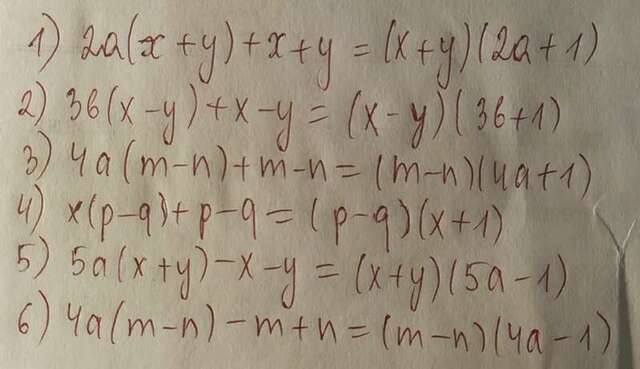 1) 2a(x+y)+x+y=(x+y)(2a+1)
2) 3b(x-y)+x-y=(x-y)(3b+1)
3) 4a(m-n)+m-n=(m-n)(4a+1)
4) x(p-q)+p-q=(p-q)(x+1)
5) 5a(x+y)-x-y=(x+y)(5a-1)
6) 4a(m-n)-m+n=(m-n)(4a-1)